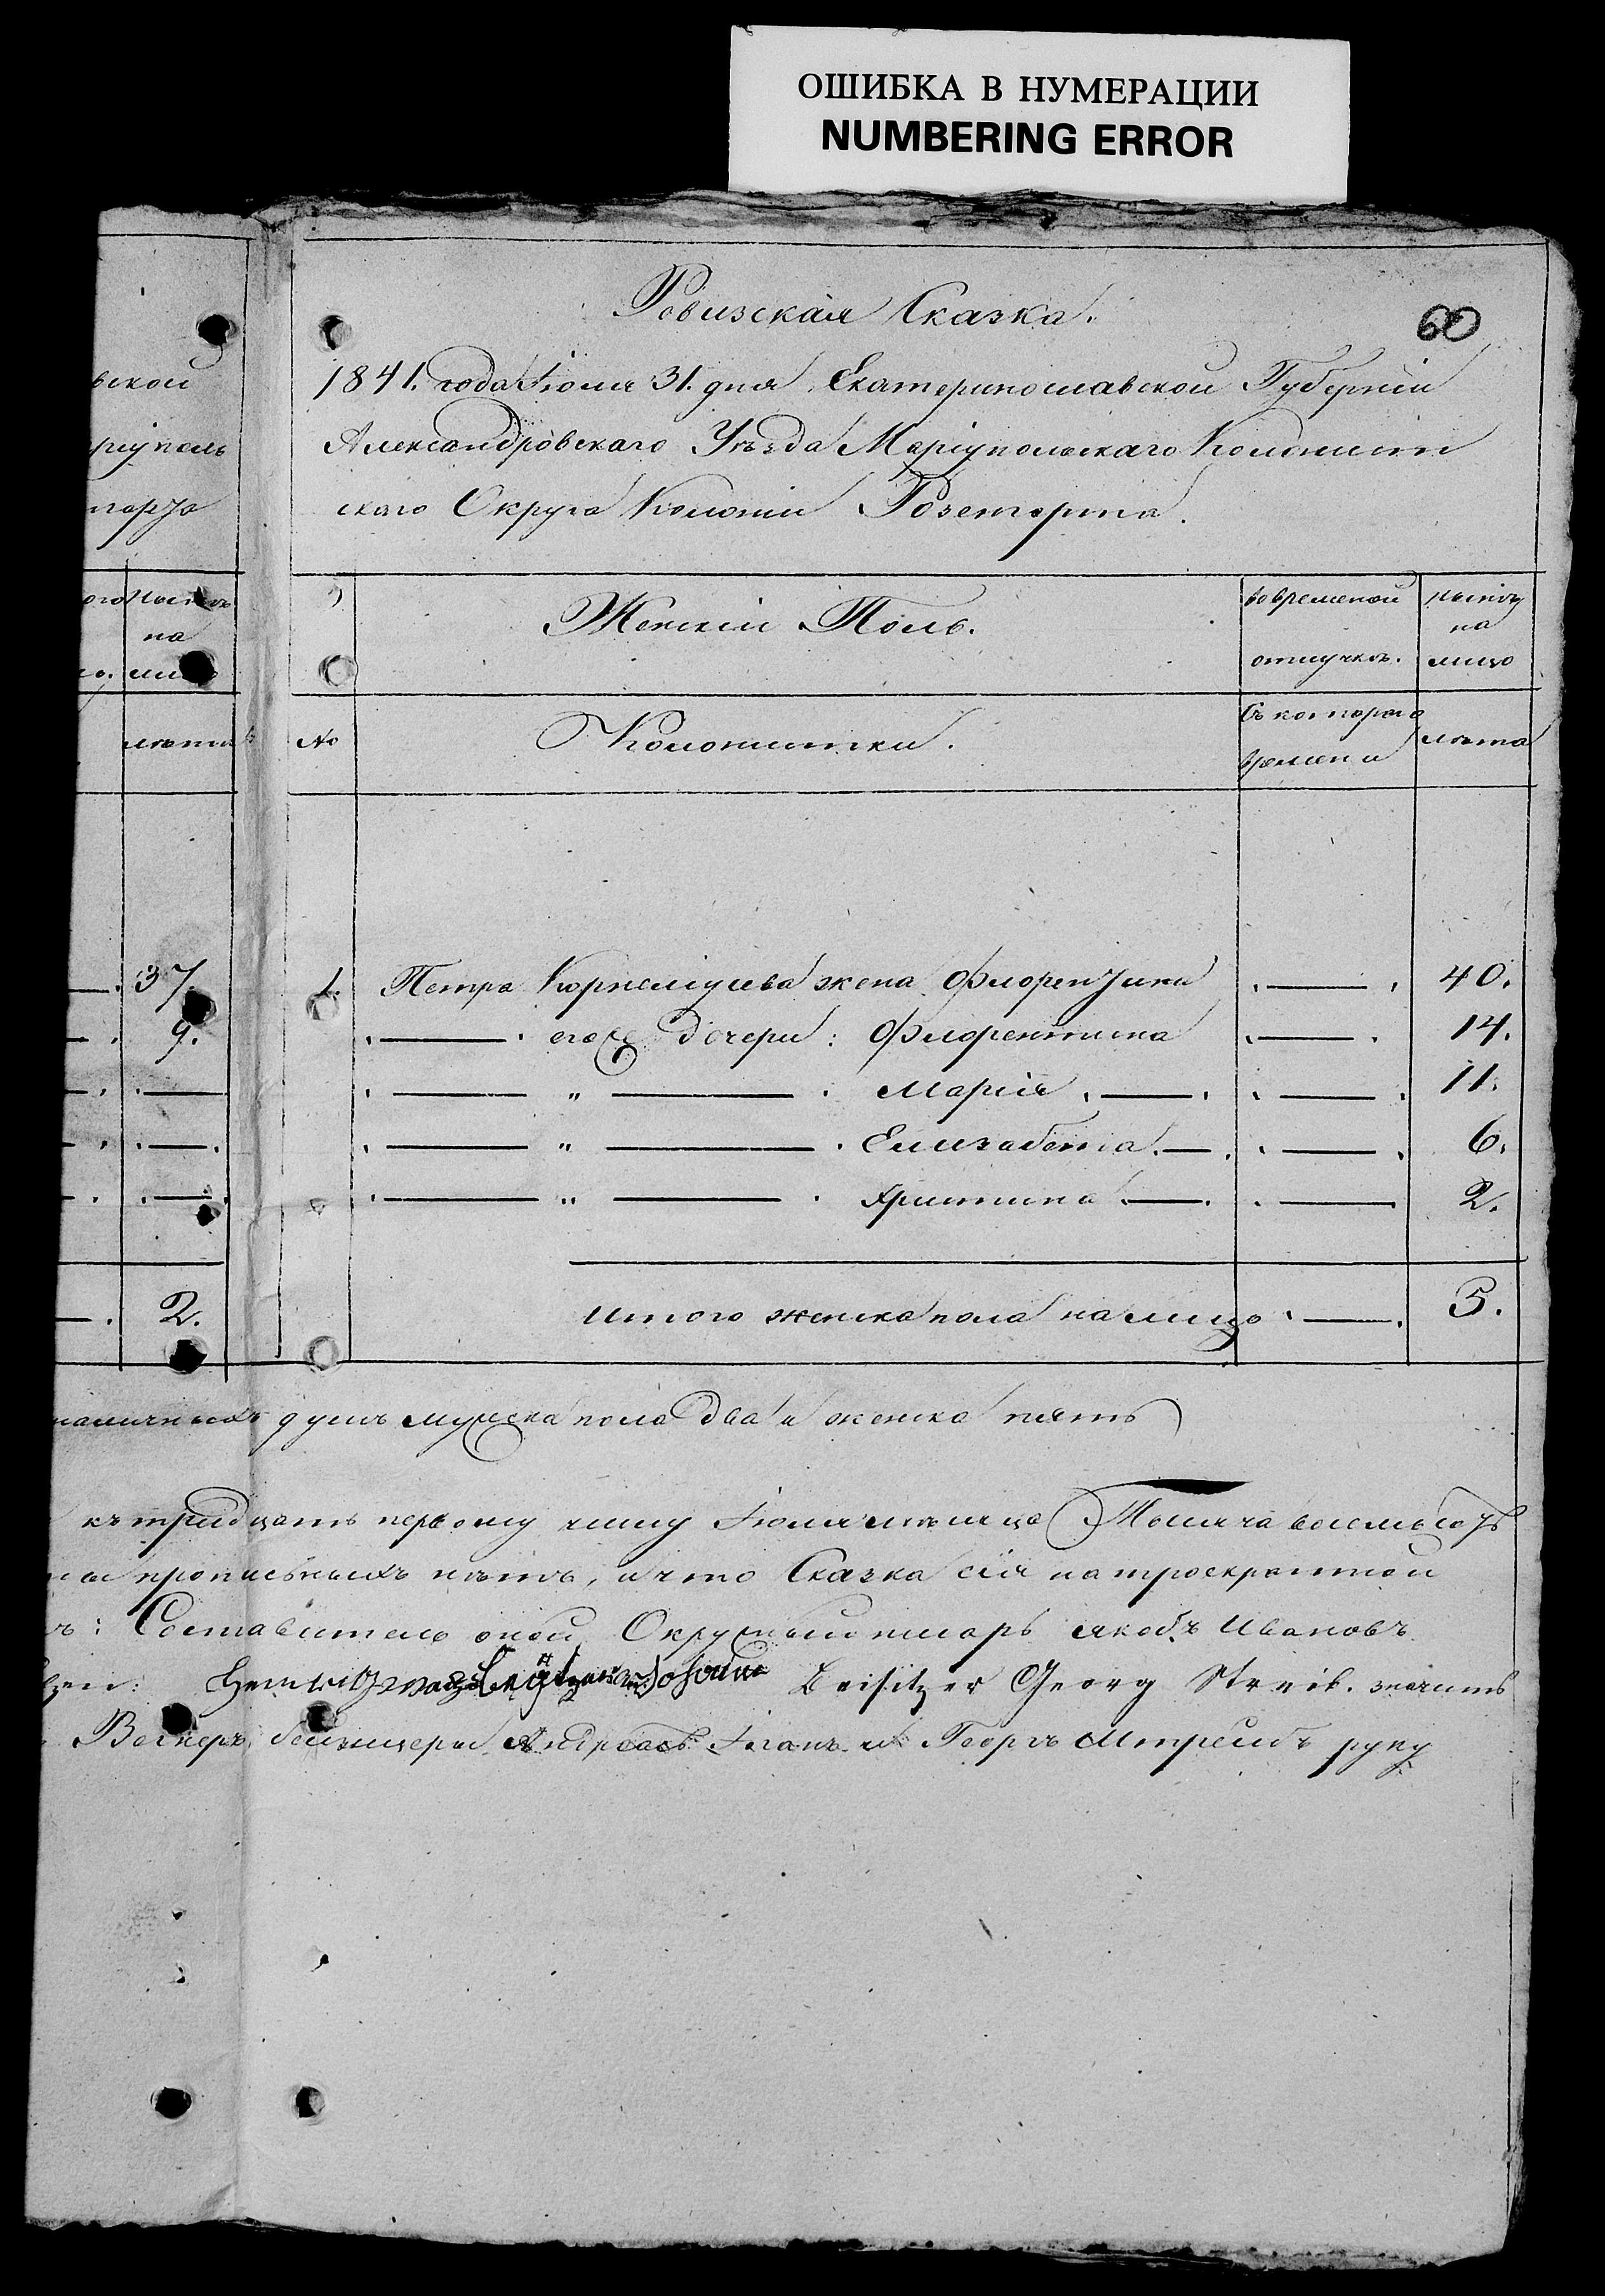 ОШИБКА В НУМЕРАЦИИ
NUMBERING ERROR
Ревизская Сказка.
60
1841. года Іюля 31. дня Екатеринославской Губерніи
Александровскаго Уѣзда Маріупольскаго Колонист
скаго Округа Колоніи Розенгорта.
вской
ріуполь
гарта
Женскій Полъ.
во временной
отлучкѣ.
нынѣ
на
лицо
на
№
Колонистки.
Съ котораго
времени
лѣта
лѣта
37.
1. Петра Корнеліусева жена Флорентина 40.
9.
его же дочери: Флорентина 14.
" Марія 11.
" Елизабета 6.
" Христина 2.
2.
Итого женска пола на лицо 5.
наличныхъ душъ мужска пола два и женска пять
къ тридцать первому числу Іюля мѣсяца Тысяча восемьсотъ
прописныхъ нѣтъ, и что Сказка сія на троекратной
Составитель оной Окружный писарь Якобъ Ивановъ
Beisitzer Georg Streib. значитъ
бейзицеры Андреасъ и Георгъ Штрейбъ руку